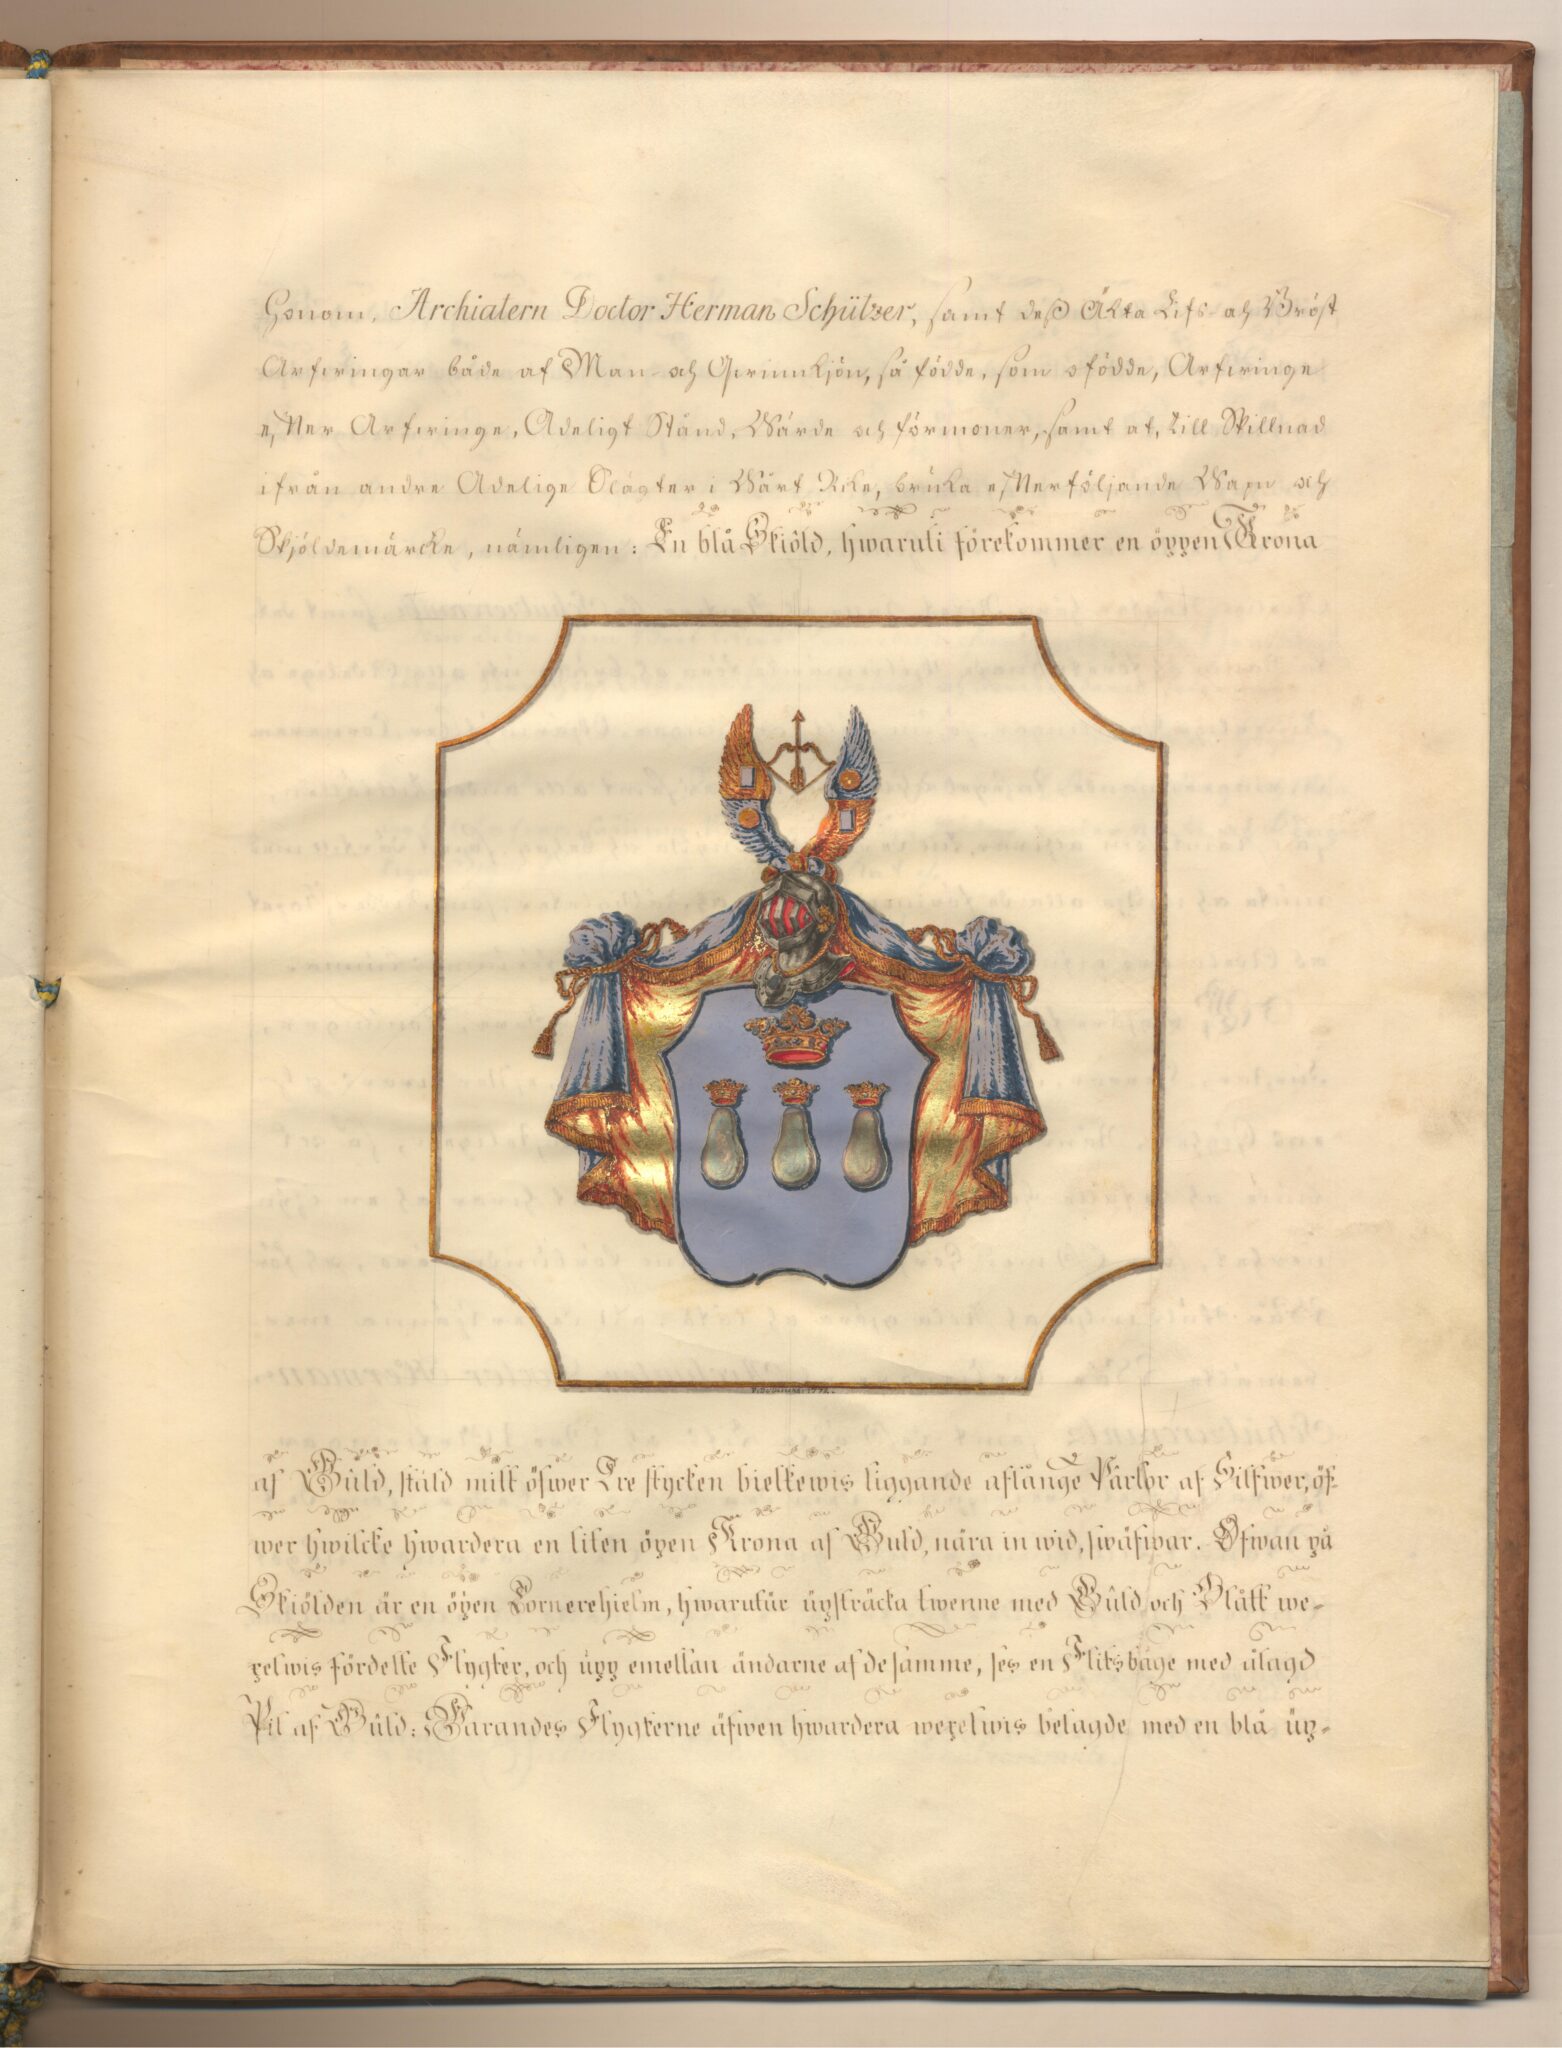 honom, Archiatern Doctor Herman Schützer, samt deß Äkta Lifs- och Bröst
Arfwingar både af Man- och Qwinnkjön, så födde, som ofödde, Arfwinge
efter Arfwinge, Adeligt Stånd, Wärde och förmoner, samt at, till Skillnad
ifrån andre Adelige Slägter i Wårt Rike, bruka efterföljande Wapn och
Skjöldemärcke, nämligen: En blå Skiöld, hwaruti förekommer en öppen Krona
1772.
af Guld, stäld mitt öfwer Tre stycken bielkewis liggande aflånge Pärlor af Silfwer, öf-
wer hwilcke hwardera en liten öpen Krona af Guld, nära in wid, swäfwar. Ofwan på
Skiölden är en öpen Tornerehielm, hwarutür üpsträcka twenne med Guld och Blått we-
xelwis fördelte Flygter, och üpp emellan ändarne af de samme, ses en Flitsbåge med ålagd
Pil af Guld: Warandes Flygterne äfwen hwardera wexelwis belagde med en blå üp-